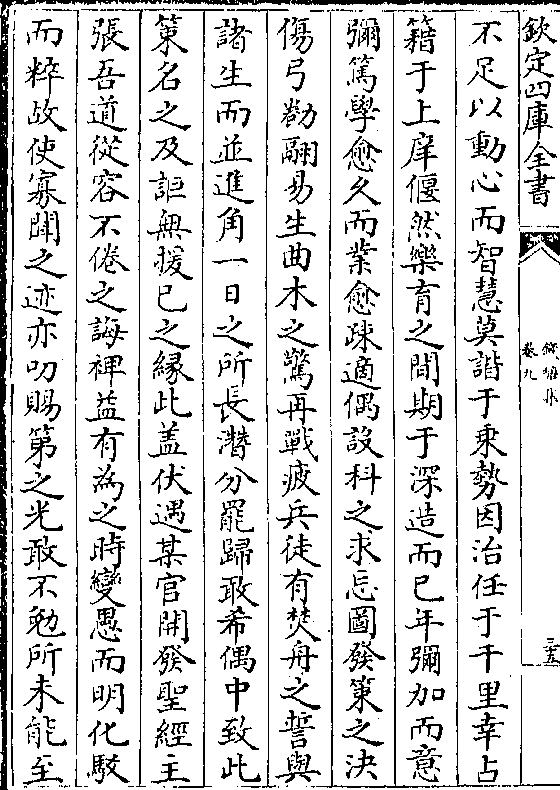 欽定四庫全書
卷九
三五
不足以動心而智慧莫諧于乘勢因治任于千里幸占
籍于上庠偃然樂育之間期于深造而已年彌加而意
彌篤學愈久而業愈疎適偶設科之求忘圖發策之決
傷弓勸翮易生曲木之驚再戰疲兵徒有焚舟之誓與
諸生而並進角一日之所長潛分罷歸敢希偶中致此
策名之及詎無援已之緣此盖伏遇某官開發聖經主
張吾道從容不倦之誨裨益有為之時變愚而明化駁
而粹故使寡聞之迹亦叨賜第之光敢不勉所未能至